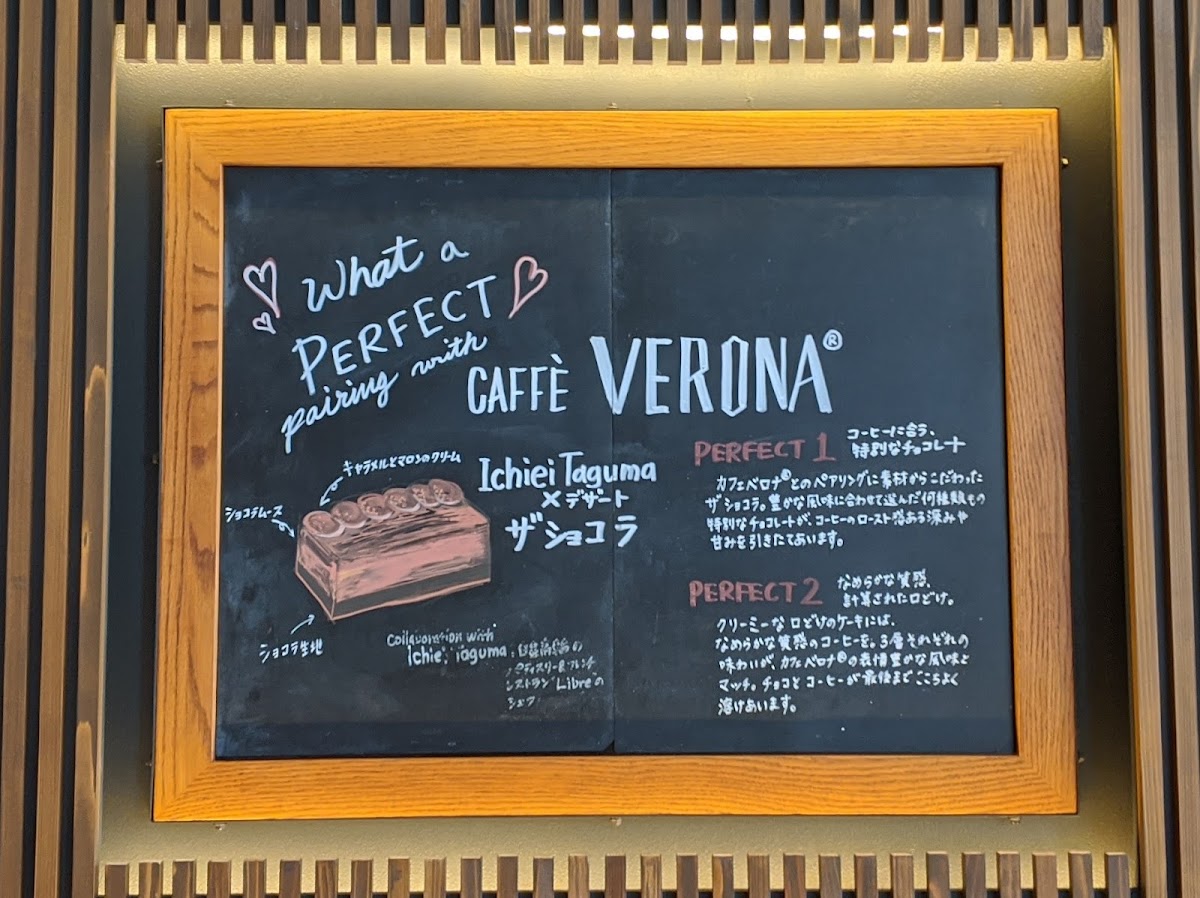 What a
PERFECT
pairing with
CAFFÈ VERONA®
キャラメルとマロンのクリーム
ショコラムース
ショコラ生地
Ichiei Taguma
×デザート
ザ ショコラ
Collavoration with
Ichiei Taguma:
レストラン "Libre"の
シェフ
PERFECT 1
コーヒーに合う、
特別なチョコレート
カフェベロナ®とのペアリングに素材からこだわった
ザ ショコラ。豊かな風味に合わせて選んだ何種類もの
特別なチョコレートが、コーヒーのロースト感ある深みや
甘みを引きたてあいます。
PERFECT 2
なめらかな質感、
計算された口どけ。
クリーミーな口どけのケーキには、
なめらかな質感のコーヒーを。3層それぞれの
味わいが、カフェベロナ®の表情豊かな風味と
マッチ。チョコとコーヒーが最後までここちよく
溶けあいます。